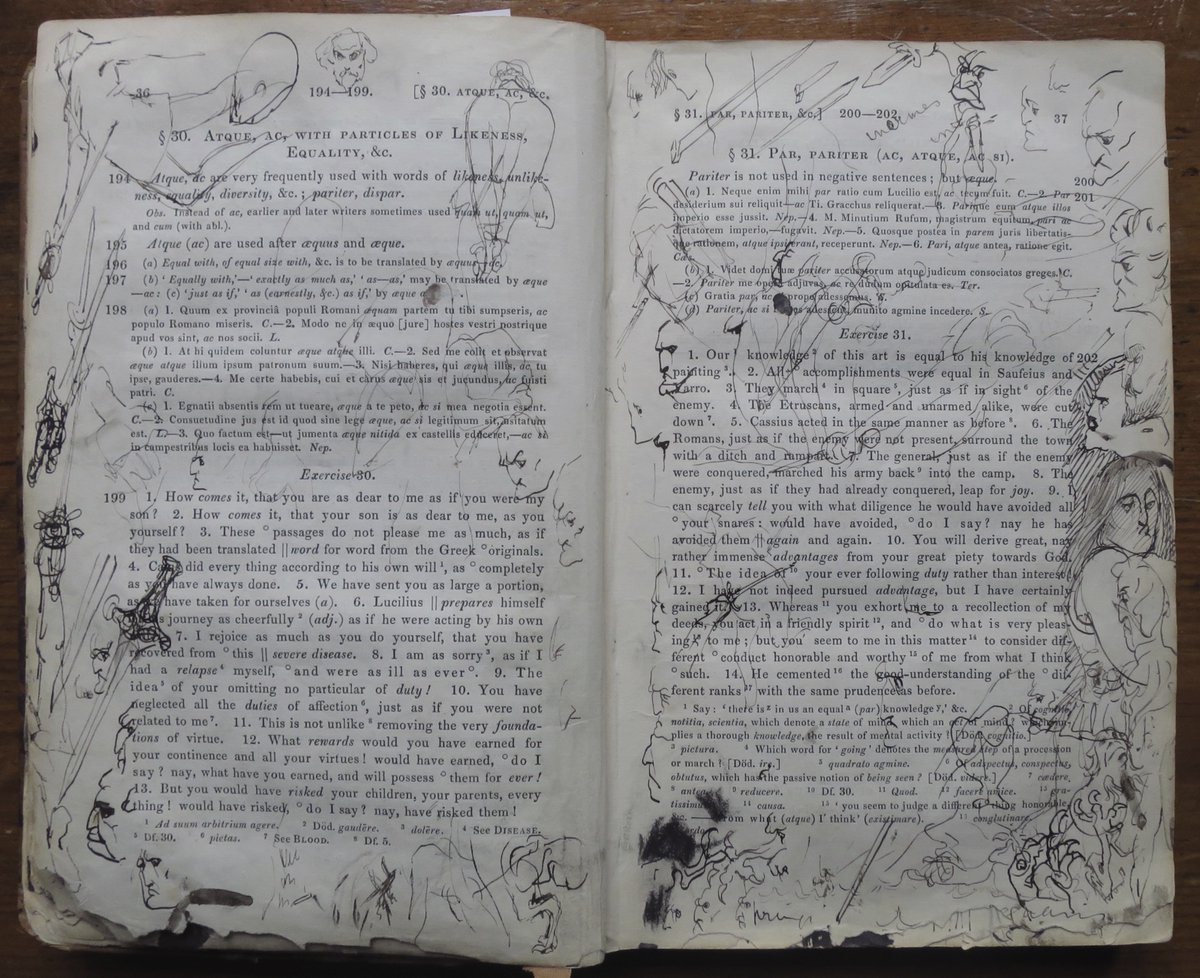 36 194—199. [§ 30. ATQUE, AC, &c.
§ 30. ATQUE, AC, WITH PARTICLES OF LIKENESS,
EQUALITY, &c.
194 Atque, ac are very frequently used with words of likeness, unlike-
ness, equality, diversity, &c.; pariter, dispar.
Obs. Instead of ac, earlier and later writers sometimes used quam ut, quam ut,
and cum (with abl.).
195 Atque (ac) are used after æquus and æque.
196 (a) Equal with, of equal size with, &c. is to be translated by æquus—ac.
197 (b) 'Equally with,'—'exactly as much as,' 'as—as,' may be translated by æque
—ac: (c) 'just as if,' 'as (earnestly, &c.) as if,' by æque
198 (a) 1. Quum ex provinciâ populi Romani æquam partem tu tibi sumpseris, ac
populo Romano miseris. C.—2. Modo ne in æquo [jure] hostes vestri nostrique
apud vos sint, ac nos socii. L.
(b) 1. At hi quidem coluntur æque atque illi. C.—2. Sed me colit et observat
æque atque illum ipsum patronum suum.—3. Nisi haberes, qui æque illis, ac tu
ipse, gauderes.—4. Me certe habebis, cui et carus æque sis et jucundus, ac fuisti
patri. C.
(c) 1. Egnatii absentis rem ut tueare, æque a te peto, ac si mea negotia essent.
C.—2. Consuetudine jus est id quod sine lege æque, ac si legitimum sit, usitatum
est. L.—3. Quo factum est—ut jumenta æque nitida ex castellis educeret,—ac si
in campestribus locis ea habuisset. Nep.
Exercise 30.
199 1. How comes it, that you are as dear to me as if you were my
son? 2. How comes it, that your son is as dear to me, as you
yourself? 3. These ° passages do not please me as much, as if
they had been translated || word for word from the Greek ° originals.
4. did every thing according to his own will ¹, as ° completely
as you have always done. 5. We have sent you as large a portion,
as have taken for ourselves (a). 6. Lucilius || prepares himself
journey as cheerfully ² (adj.) as if he were acting by his own
7. I rejoice as much as you do yourself, that you have
recovered from ° this || severe disease. 8. I am as sorry ³, as if I
had a relapse ⁴ myself, ° and were as ill as ever °. 9. The
idea ⁵ of your omitting no particular of duty! 10. You have
neglected all the duties of affection ⁶, just as if you were not
related to me ⁷. 11. This is not unlike ⁸ removing the very founda-
tions of virtue. 12. What rewards would you have earned for
your continence and all your virtues! would have earned, ° do I
say? nay, what have you earned, and will possess ° them for ever!
13. But you would have risked your children, your parents, every
thing! would have risked, ° do I say? nay, have risked them!
¹ Ad suum arbitrium agere. ² Död. gaudēre. ³ dolēre. ⁴ See DISEASE.
⁵ Df. 30. ⁶ pietas. ⁷ See BLOOD. ⁸ Df. 5.
§ 31. PAR, PARITER, &c.] 200—202. 37
§ 31. PAR, PARITER (AC, ATQUE, AC SI).
Pariter is not used in negative sentences; but æque. 200
(a) 1. Neque enim mihi par ratio cum Lucilio est, ac tecum fuit. C.—2. Par 201
desiderium sui reliquit—ac Ti. Gracchus reliquerat.—3. Parique eum atque illos
imperio esse jussit. Nep.—4. M. Minutium Rufum, magistrum equitum, pari ac
dictatorem imperio,—fugavit. Nep.—5. Quosque postea in parem juris libertatis-
que rationem, atque ipsi erant, receperunt. Nep.—6. Pari, atque antea, ratione egit.
Cæs.
(b) 1. Videt domi tuæ pariter accusatorum atque judicum consociatos greges. C.
—2. Pariter me opere adjuvas, ac re dudum opitulata es. Ter.
(c) Gratia par, ac prope adessemus.
(d) Pariter, ac si hostes adessent, munito agmine incedere. S.
Exercise 31.
1. Our ¹ knowledge ² of this art is equal to his knowledge of 202
painting ³. 2. All accomplishments were equal in Saufeius and
Varro. 3. They march ⁴ in square ⁵, just as if in sight ⁶ of the
enemy. 4. The Etruscans, armed and unarmed alike, were cut
down ⁷. 5. Cassius acted in the same manner as before ⁸. 6. The
Romans, just as if the enemy were not present, surround the town
with a ditch and rampart. 7. The general, just as if the enemy
were conquered, marched his army back ⁹ into the camp. 8. The
enemy, just as if they had already conquered, leap for joy. 9. I
can scarcely tell you with what diligence he would have avoided all
° your snares: would have avoided, ° do I say? nay he has
avoided them || again and again. 10. You will derive great, nay
rather immense advantages from your great piety towards God.
11. ° The idea of ¹⁰ your ever following duty rather than interest!
12. I have not indeed pursued advantage, but I have certainly
gained it. 13. Whereas ¹¹ you exhort me to a recollection of my
deeds, you act in a friendly spirit ¹², and ° do what is very pleas-
ing ¹³ to me; but you seem to me in this matter ¹⁴ to consider dif-
ferent ° conduct honorable and worthy ¹⁵ of me from what I think
° such. 14. He cemented ¹⁶ the good-understanding of the ° dif-
ferent ranks ¹⁷ with the same prudence as before.
¹ Say: 'there is in us an equal (par) knowledge,' &c. ² Of cognitio,
notitia, scientia, which denote a state of mind, which an act of mind? which im-
plies a thorough knowledge, the result of mental activity? [Död. cognitio.]
³ pictura. ⁴ Which word for 'going' denotes the measured step of a procession
or march? [Död. ire.] ⁵ quadrato agmine. ⁶ Of adspectus, conspectus,
obtutus, which has the passive notion of being seen? [Död. videre.] ⁷ cædere.
⁸ antea. ⁹ reducere. ¹⁰ Df. 30. ¹¹ Quod. ¹² facere amice. ¹³ gra-
tissimus. ¹⁴ causa. ¹⁵ 'you seem to judge a different ° thing honorable,
&c. from what (atque) I think' (existimare). ¹⁶ conglutinare.